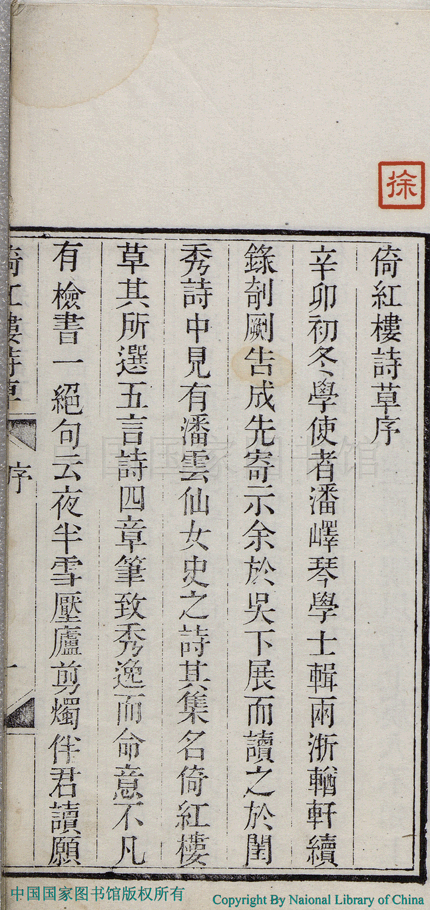 徐
倚紅樓詩草序
辛卯初冬學使者潘嶧琴學士輯兩浙輶軒續
錄剞劂告成先寄示余於吳下展而讀之於閨
秀詩中見有潘雲仙女史之詩其集名倚紅樓
草其所選五言詩四章筆致秀逸而命意不凡
有檢書一絕句云夜半雪壓廬剪燭伴君讀願
倚紅樓詩草 序 一
中国国家图书馆
中国国家图书馆版权所有
Copyright By Naional Library of China